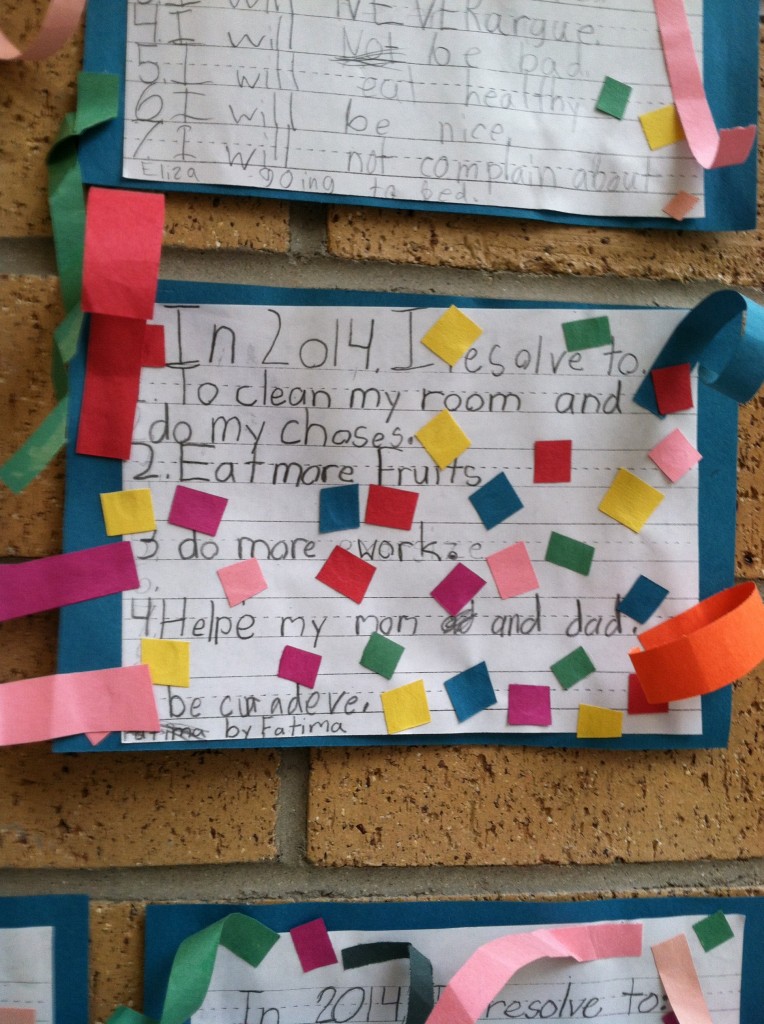 I will NEVER argue.
4. I will be bad.
5. I will eat healthy
6 I will be nice.
7. I will not complain about
Eliza going to bed.
In 2014. I resolve to.
To clean my room and
do my choses.
2. Eat more Fruits
3 do more work.
4. Helpe my mom and dad.
be curadeve.
by Fatima
In 2014 I resolve to: